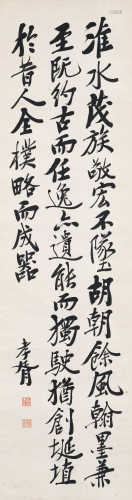 淮水茂族敬宏不墜胡朝餘風翰墨兼
至阮約古而任逸亦遺能而獨駛猶創埏埴
於昔人全樸略而成器
孝胥